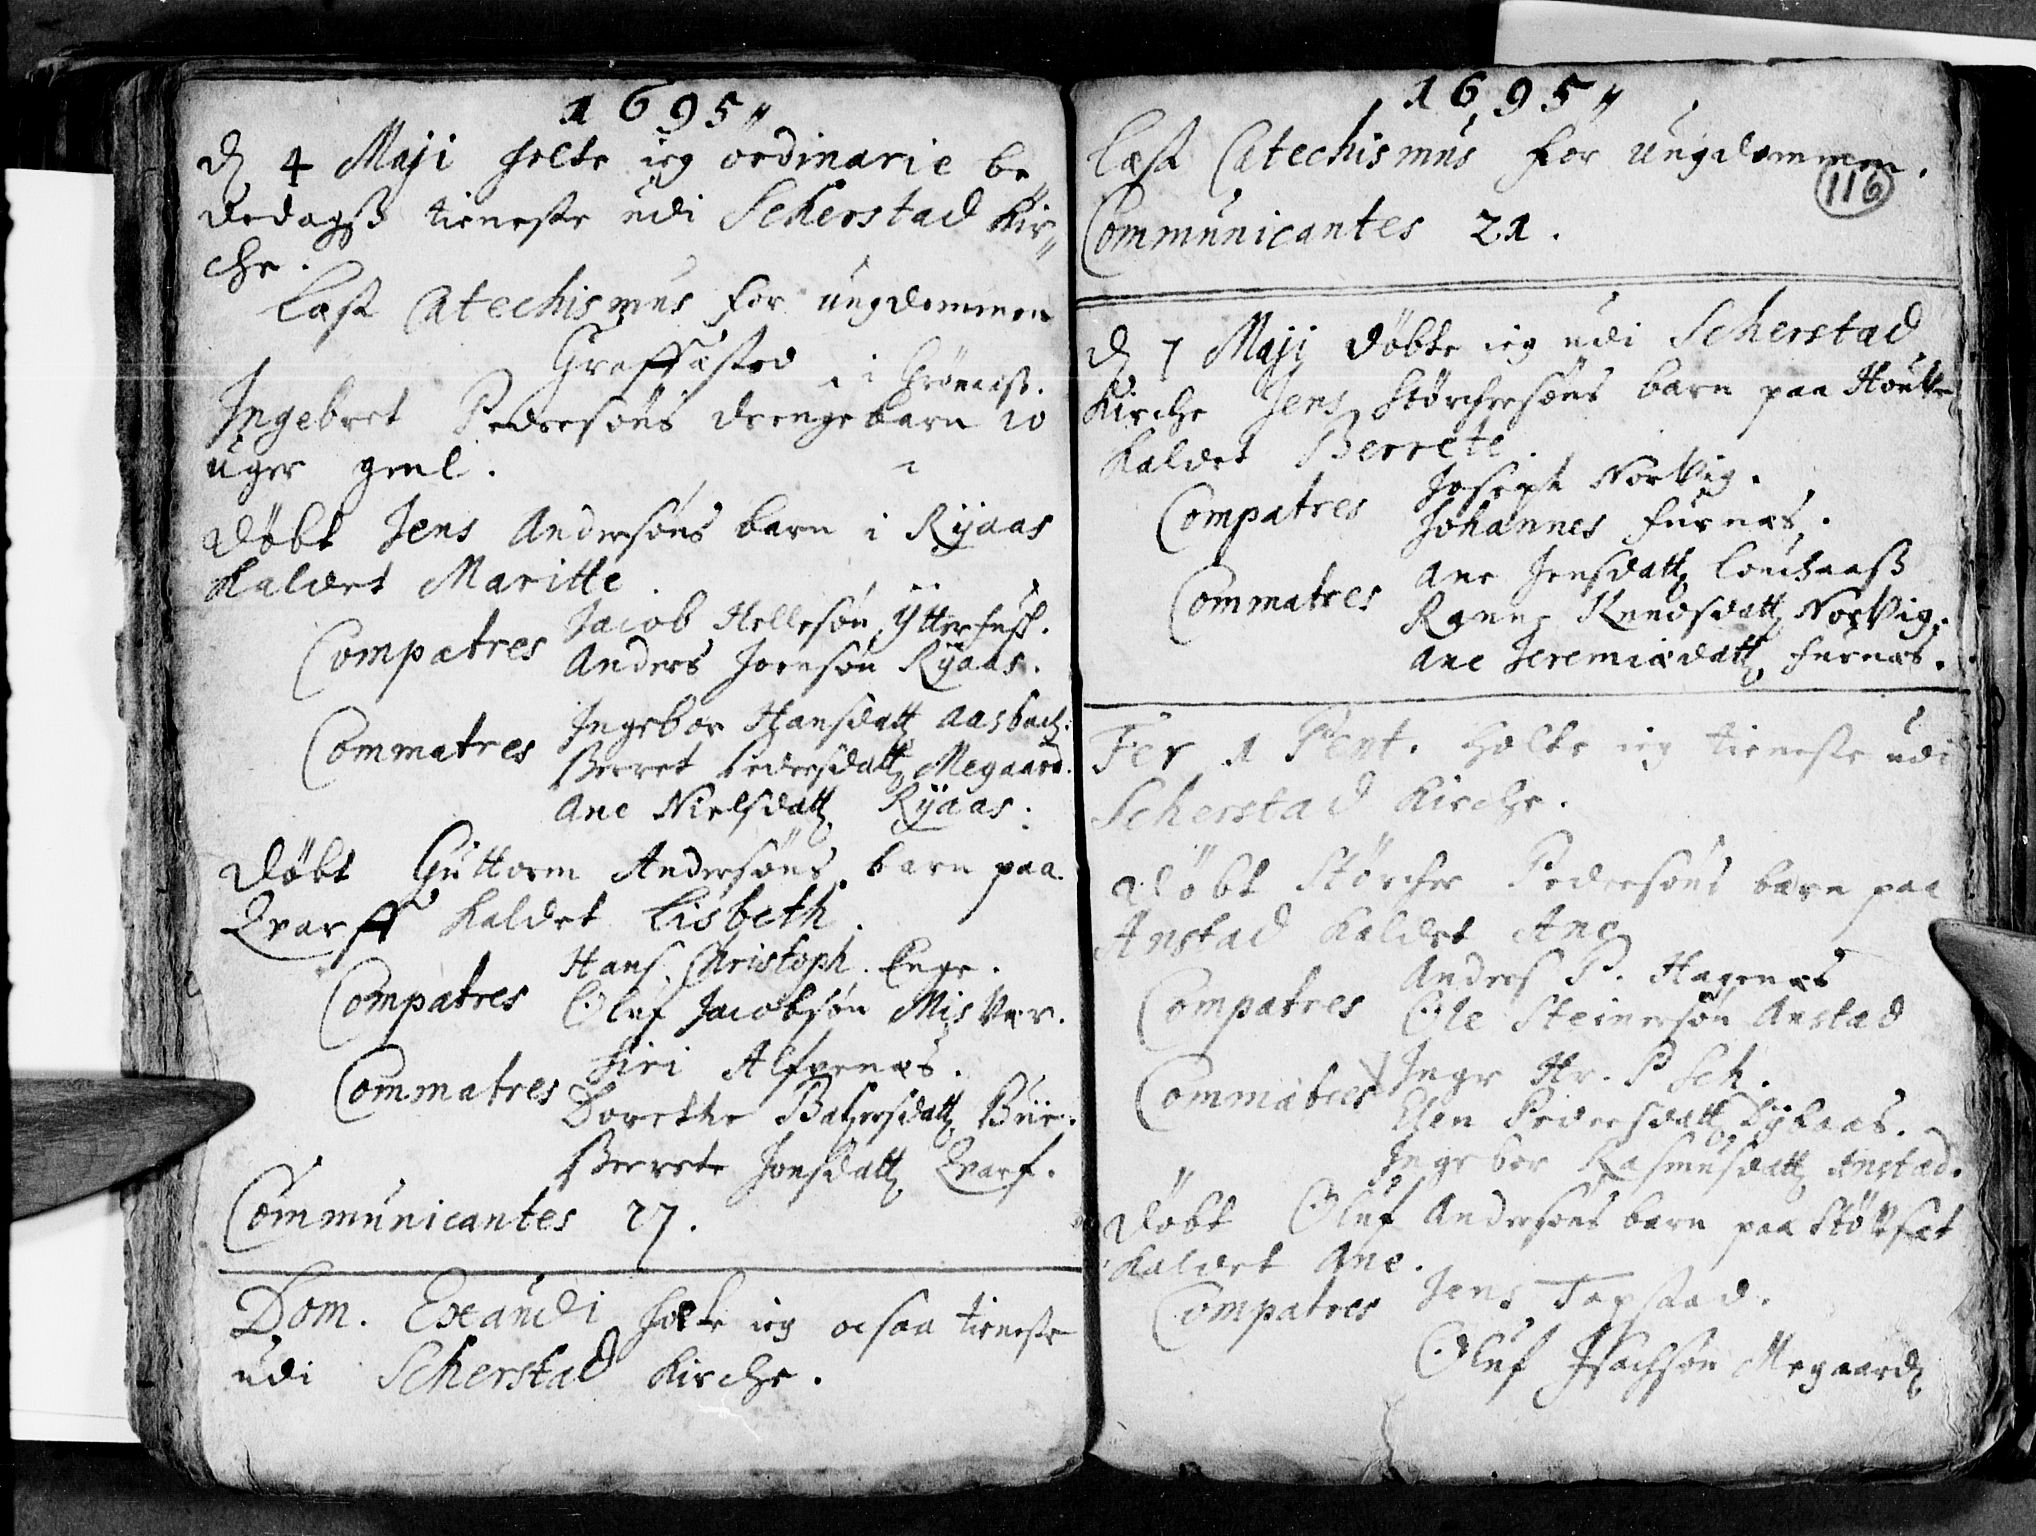 1695"
d 4 Maji holte ieg ordinarie be"
dedagß tieneste udi Scherstad Kir"
che.
Læst Catechismus for ungdommen
Graffæsted
Ingebret Pedersøns drengebarn 10
uger gml.
Døbt Jens Andersøns barn i Ryaas
Kaldet Maritte
Compatres
Jacob Hellesøn Ytterhuß.
Anders Jonsøn Ryaas.
Commatres
Ingebor Hansdatt Aasbach.
Berret Pedersdatt Megaard.
Ane Nielsdatt Ryaas.
Døbt Guttorm Andersøns barn paa
Qvarff Kaldet Lisbeth.
Compatres
Hans Christoph. Enge.
Oluf Jacobsøn Misvær.
Commatres
Siri Alfvenæs.
Dorethe Baltzersdatt
Berrete Jonsdatt Qvarf.
Communicantes 27.
Dom. Exaudi holte ieg ocsaa tieneste
udi Scherstad Kirche.
1695"
116
Læst Catechismus for ungdommen.
Communicantes 21.
d 7 Maji døbte ieg udi Scherstad
Kirche Jens Størchersøns barn paa
Kaldet Berrete.
Compatres
Joseph Norvig.
Johannes Furnæs.
Commatres
Ane Jensdatt
Knudsdatt Norvig.
Ane Jeremiædatt Furnæs.
Fer 1 Pent. Holte ieg tieneste udi
Scherstad Kirche.
Døbt Størcher Pedersøns barn paa
Anstad Kaldet Ane
Compatres
Anders P. Hagenæs
Ole Steinersøn Anstad
Commatres
Hr. P Sch.
Elen Pedersdatt
Ingebor Rasmusdatt Anstad.
Døbt Oluf Andersøns barn paa
Kaldet Ane.
Compatres
Jens Torstad.
Oluf Isachsøn Megaard